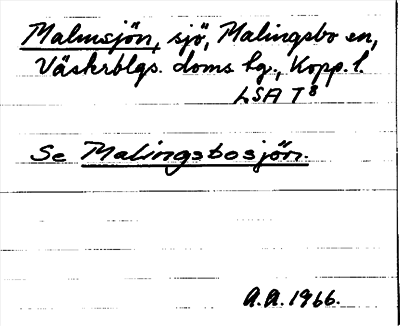 Malmsjön, sjö, Malingsbo sn,
Västerblgs. doms hg., Kopp. l.
LSA T8
Se Malingsbosjön.
A.A. 1966.